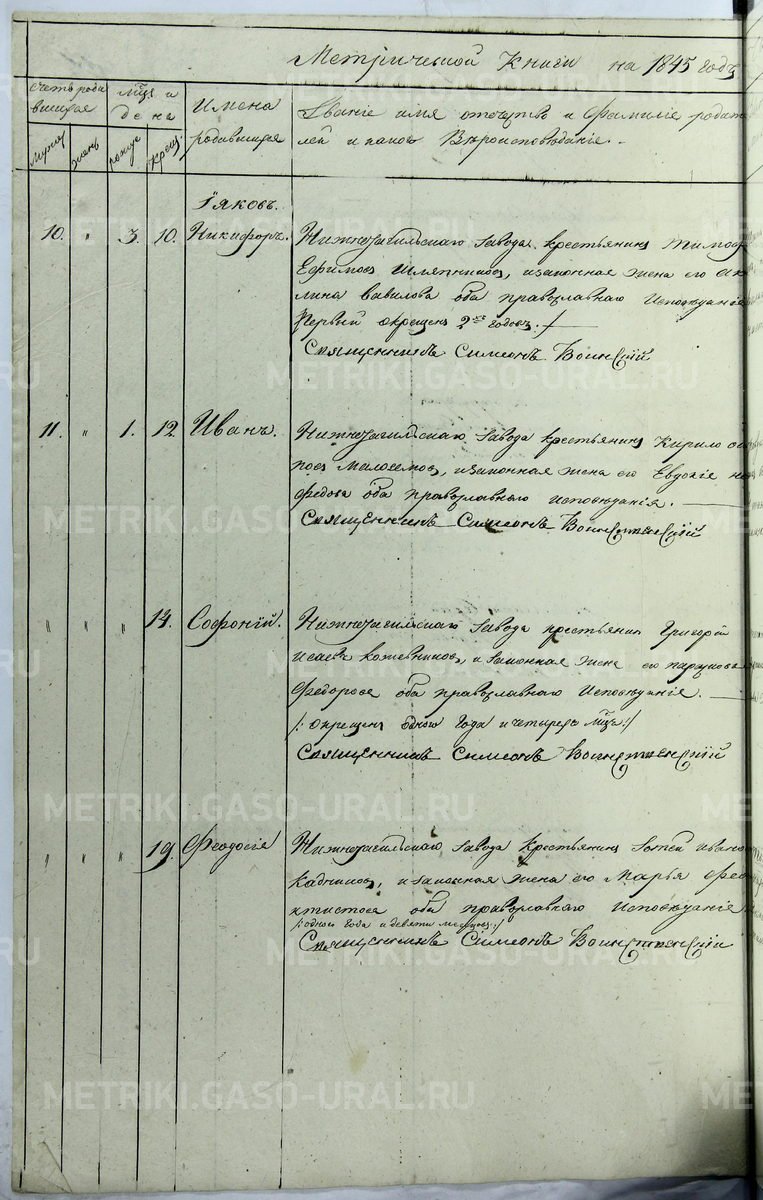 Метрической Книги на 1845 годъ
Счетъ роди
вшихся
Мѣц и
дена
Имена
родившихся
Званіе имя отчество и Фамиліе родите
лей и какого Вѣроисповѣданія.
мужес
женс
рожде
крещ.
Іяковъ.
10. " 3. 10. Никифоръ. Нижнетагильскаго завода крестьянинъ Тимоф
Ефимовъ Шляпниковъ, изаконная жена его Аку
лина Вавилова оба православнаго Исповѣданія
Первый окрещенъ 2хъ годовъ./
Священникъ Симеонъ Воинс
11. " 1. 12. Иванъ. Нижнетагильскаго завода крестьянинъ Кирило
Малоземов, изаконная жена его Евдокія
федова оба православнаго исповѣданія.
Священникъ Симеонъ Воинственскій
" " " 14. Софроній. Нижнетагильскаго завода крестьянин Григорій
Исаевъ кожевниковъ, и законная жена его параскова
Федорова оба православнаго Исповѣданія.
/: окрещенъ одного года и четырехъ Мцъ:/
Священникъ Симеонъ Воинственскій
" " " 19. Феодосія Нижнетагильскаго завода крестьянинъ Зотей Ивано
Кадниковъ, и законная жена его Марья Фео
ктистова оба православнаго Исповѣданія
/: одного года и девяти месяцовъ:/
Священникъ Симеонъ Воинственскій
METRIKI.GASO-URAL.RU